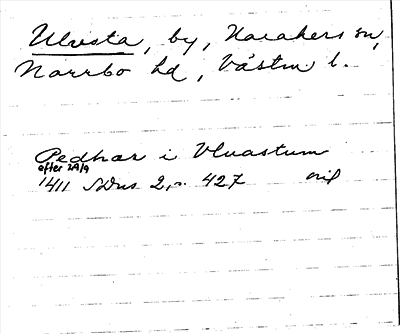 Ulvsta, by, Harakers sn,
Norrbo hd, Västm l.
Pedhar i Vlvastum
efter 29/9
1411 SDns 2, s. 427 orig